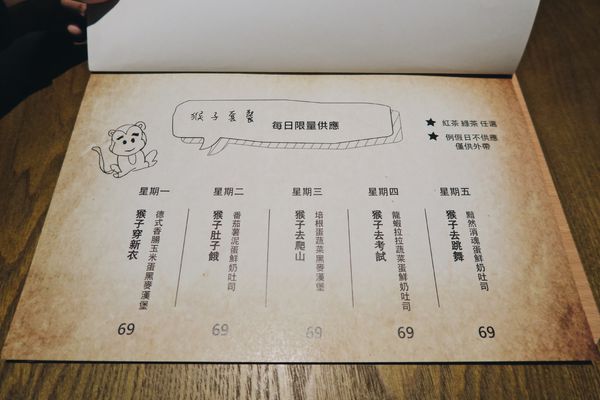 猴子套餐
每日限量供應
★ 紅茶 綠茶 任選
★ 例假日不供應
僅供外帶
星期一
猴子穿新衣
德式香腸玉米蛋黑麥漢堡
69
星期二
猴子肚子餓
番茄薯泥蛋鮮奶吐司
69
星期三
猴子去爬山
培根蛋蔬菜黑麥漢堡
69
星期四
猴子去考試
龍蝦拉拉蔬菜蛋鮮奶吐司
69
星期五
猴子去跳舞
黯然消魂蛋鮮奶吐司
69